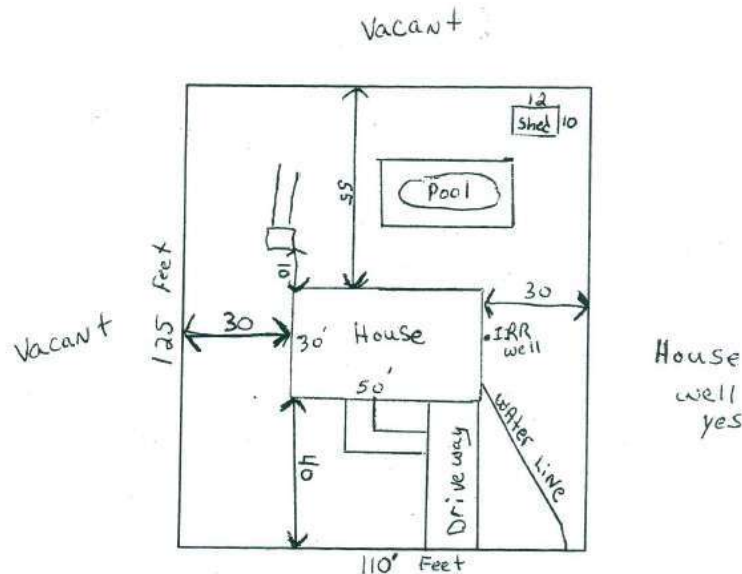 Vacant
12
Shed 10
55
Pool
10
125 Feet
30
30
Vacant
30'
House
.IRR
well
House
well
yes
50'
40
Driveway
WATER LINE
110' Feet